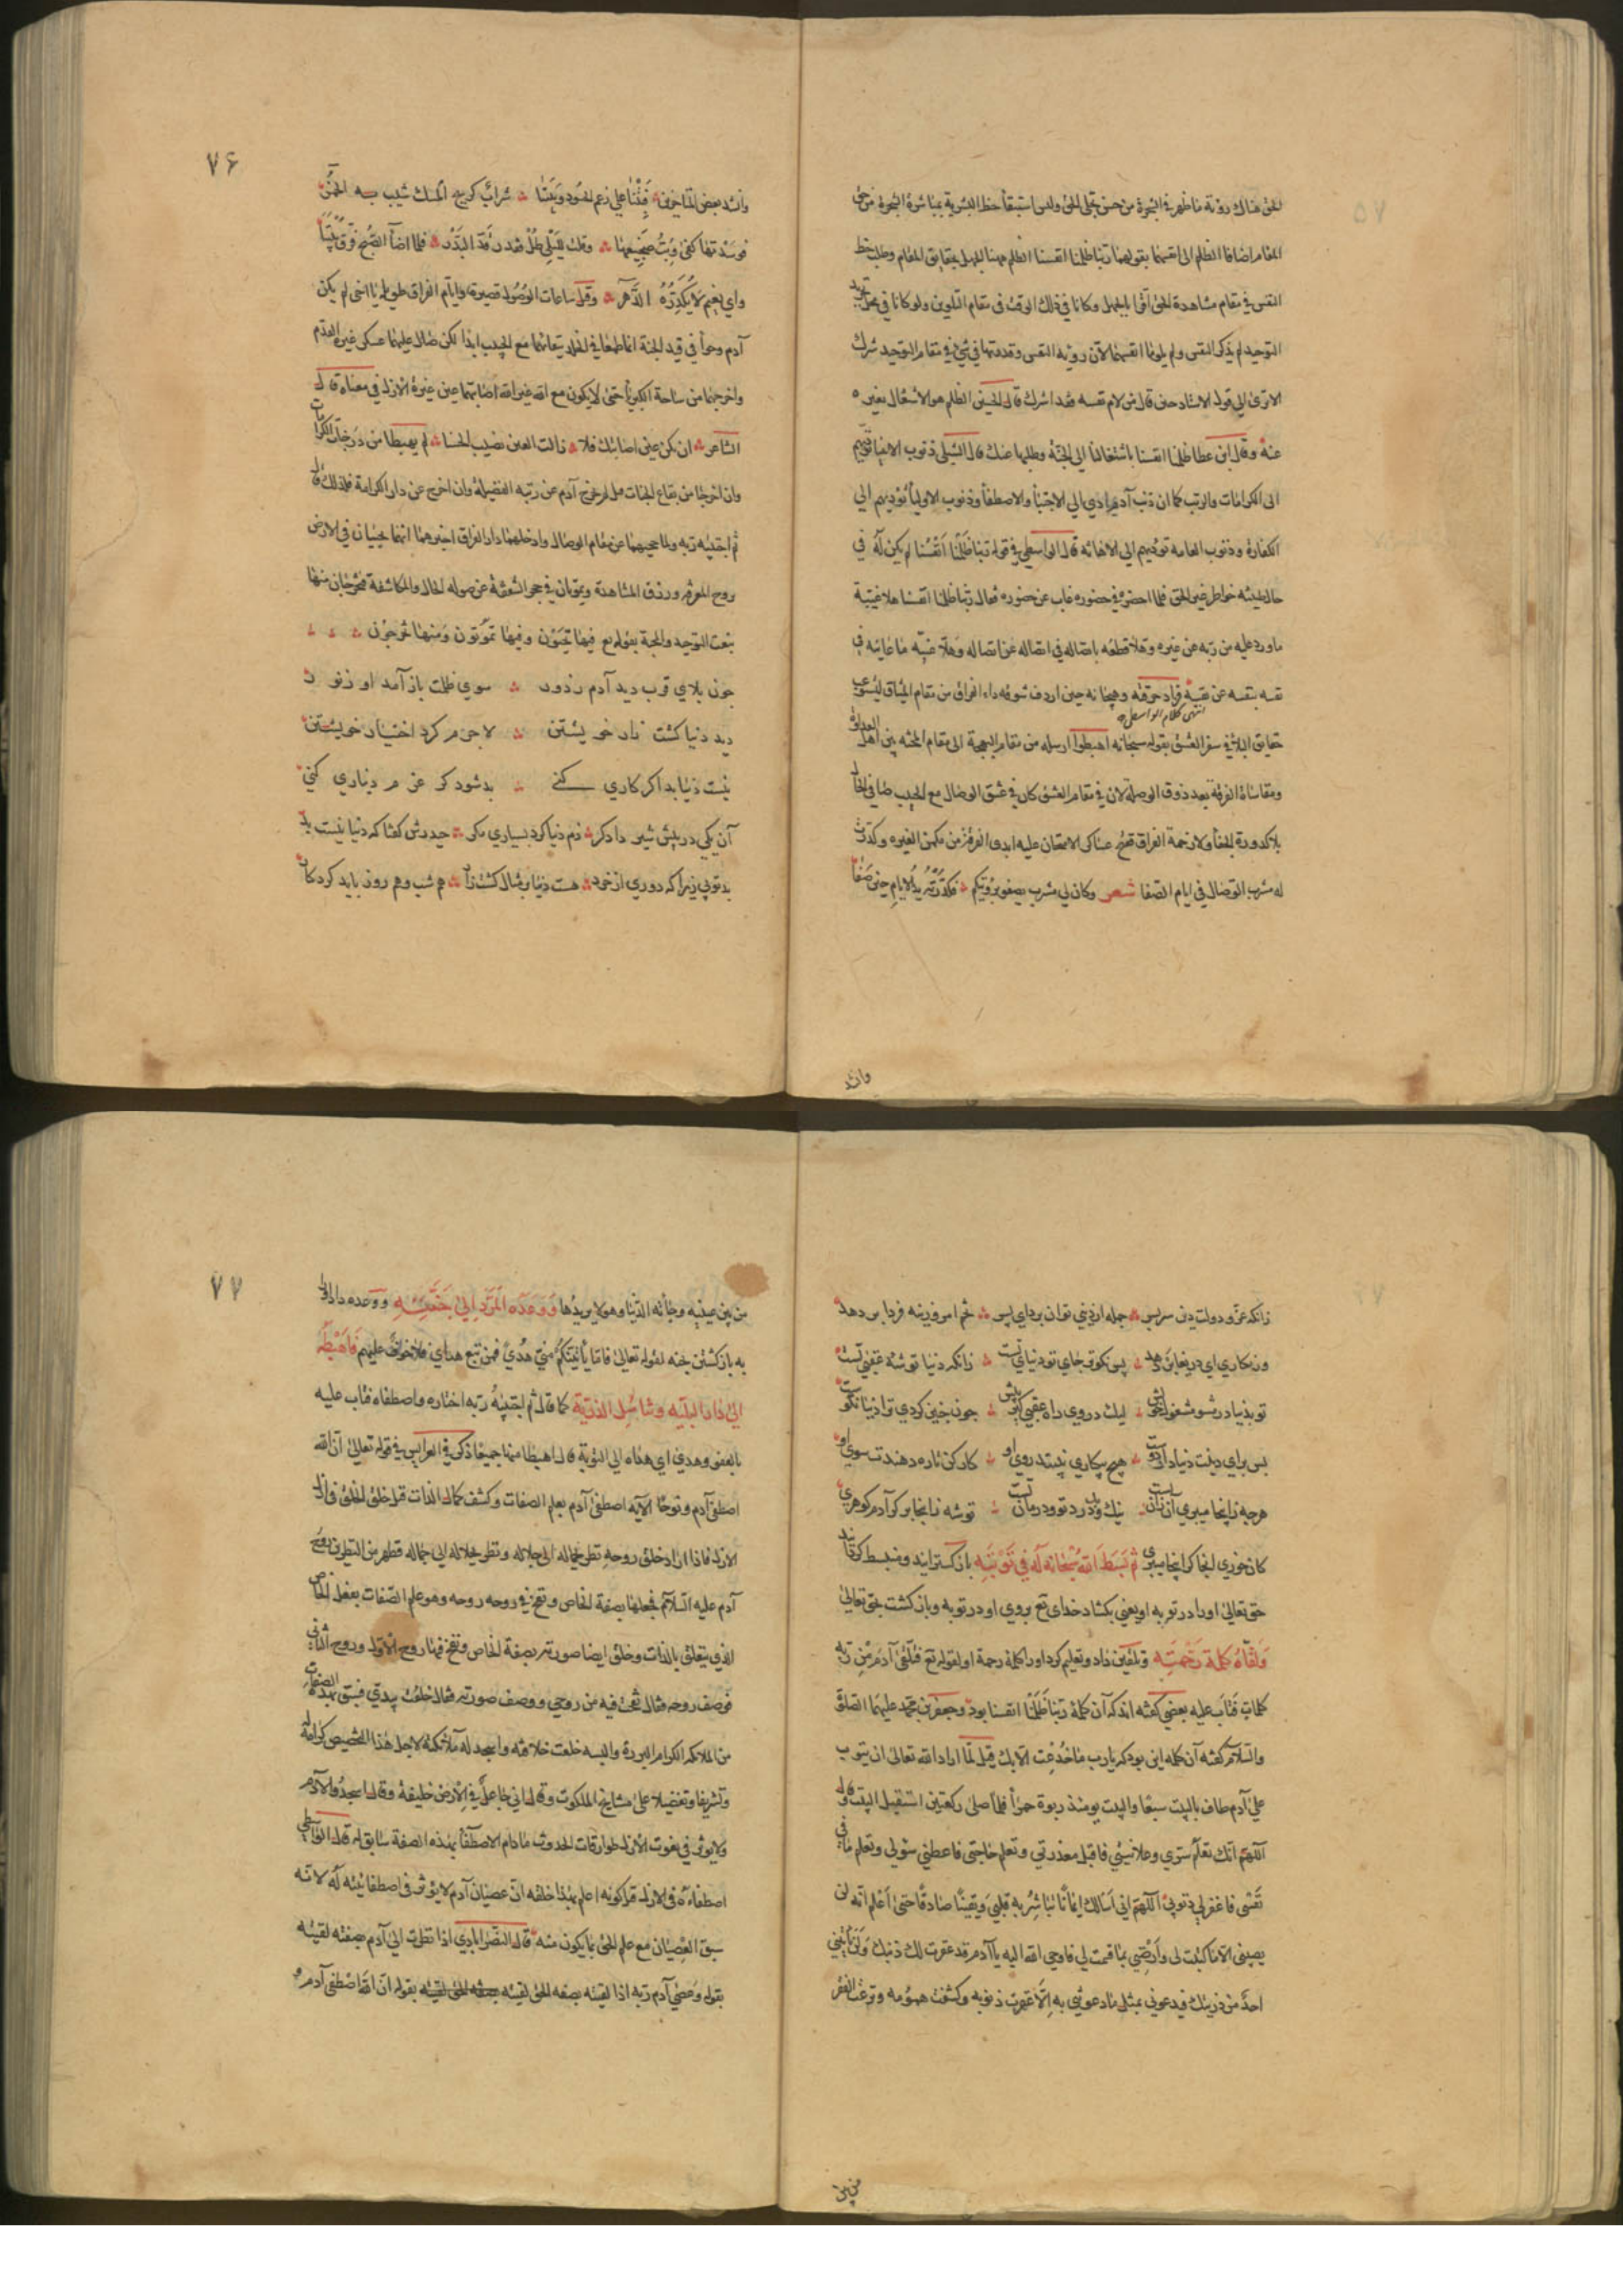 الحق هناك رؤية ما ظهر في الشجرة من حسن تجلى الحق وليس استبقأ حظ البشرية بمباشرة الشجرة من حق
المقام اضافا الظلم الى انفسهما بقولهما ربنا ظلمنا انفسنا الظلم ههنا الجهل بحقايق المقام وطلب حظ
النفس في مقام مشاهدة الحق اقرا بالجهل وكانا في ذلك الوقت في مقام التلوين ولو كانا في محل تجريد
التوحيد لم يذكر النفس ولم يلوما انفسهما لان رؤية النفس وقدرتها في شئ في مقام التوحيد شرك
الا ترى الى قول الاستاد حين قال من لام نفسه فقد اشرك قال الحسين الظلم هو الاشتغال بغيره
عنه وقال ابن عطا ظلمنا انفسنا باشتغالنا الى الجنة وطلبها عنك قال الشبلى ذنوب الانبيا تؤديهم
الى الكرامات والرتب كما ان ذنب آدم اداه الى الاجتبأ والاصطفأ وذنوب الاوليأ تؤديهم الى
الكفارة وذنوب العامة تؤديهم الى الاهانة قال الواسطى في قوله ربنا ظلمنا انفسنا لم يكن له في
حال طينته خواطر غير الحق فلما احضره في حضوره غاب عن حضوره فقال ربنا ظلمنا انفسنا هلا غيبه
ما ورد عليه من ربه عن غيره وهلا قطعه باتصاله في اتصاله عن اتصاله وهلا غيبه ما عاينه في
نفسه بنفسه عن نفسه فزاد حرقته وهيجانه حين اردف شوقه داء الفراق من مقام الميثاق ليستوعب
انتهى كلام الواسطى
حقايق البلاء في سفر العشق بقوله سبحانه اهبطوا ارسله من مقام البهجة الى مقام المحنة بين اهل العداوة
ومقاساة الفرقة بعد ذوق الوصلة لان في مقام العشق كان في عشق الوصال مع الحبيب صافى الحال
بلا كدورة الجفأ ولا زحمة الفراق
له مشرب الوصال في ايام الصفا شعر وكان لي مشرب يصفو برؤيتكم فكدرته يد الايام حين صفا
وانشد
۷۶
وانشد بعض المتاخرين فبتنا على رغم الحسود وبيننا شراب كريح المسك شيب به الخمر
فوسدتها كفي وبت ضجيعها وقلت لليلي طل فقد رقد البدر فلما اضآ الصبح فرق بيننا
واي نعيم لا يكدره الدهر وقيل ساعات الوصول قصيرة وايام الفراق طويلة يا اخى لم يكن
آدم وحوأ في قيد الجنة انما طمعا في الخلد بقائهما مع الحبيب ابدا لكن صال عليهما عسكر غيرة القدم
واخرجهما من ساحة الكبريأ حتى لا يكون مع الله غير الله اصابتهما عين غيرة الازل في معناه قال
الشاعر ان تكن عين اصابتك فلا زالت العين تصيب الحسنا لم يهبطا من درجات الكرامات
وان اخرجا من بقاع الجنات بل لم يخرج آدم عن رتبه الفضيلة وان اخرج عن دار الكرامة فلذلك قال
ثم اجتبيه ربه ولما حجبهما عن مقام الوصال وادخلهما دار الفراق اخبرهما انهما يحييان في الارض
بروح المعرفة ورزق المشاهدة ويموتان في حجر الشفقة عن صولة الحال والمكاشفة فتخرجان منها
بنعت التوحيد والمحبة بقوله تع فيها تحيون وفيها تموتون ومنها تخرجون
چون بلاي قرب ديد آدم زدور سوي ظلمت باز آمد او ز نور
ديد دنيا كشت نار خويشتن لاجرم كرد اختيار خويشتن
نيست دنيا بد اكر كاري كني بد شود كر عزم ديناري كني
آن يكي در پيش شير دادكر ذم دنيا كرد بسياري مكر حيدرش كفتا كه دنيا نيست بد
بد توئي زيرا كه دوري از خرد هست دنيا بر مثال كشتزار هم شب وهم روز بايد كرد كار
زانكه عز ودولت دين سربسر جمله از دنيى توان برد اي پسر تخم امروزينه فردا بر دهد
ور نكاري اي دريغا بر دهد پس نكوتر جاي تو دنياي تست زانكه دنيا توشه عقبى تست
تو بدنيا در مشو مشغول خويش ليك در وي راه عقبى كير پيش چون چنين كردي ترا دنيا نكوست
پس براي دينت دنيا دار دوست هيچ بيكاري نبيند روي او كار كن تا ره دهندت سوي او
هرچه زاينجا ميبري آن زان تست نيك وبد درد تو ودرمان تست توشه زاينجا بر كر آدم كوهري
كانچه زاينجا بري آنجا خوري ثم بسط الله سبحانه له في توبته باز كسترانيد ومنبسط كردانيد
حق تعالى او را در توبه او يعني بكشاد خداى تع بروي او در توبه وباز كشت بحق تعالى
ولقاه كلمة رحمته وتلقين داد وتعليم كرد او را كلمه رحمة او لقوله تع فتلقى آدم من ربه
كلمات فتاب عليه بعضى كفته اند كه آن كلمه ربنا ظلمنا انفسنا بود وجعفر بن محمد عليهما الصلوة
والسلام كفته آن كلمه اين بود كه يا رب ما خدعت الا بك قيل لما اراد الله تعالى ان يتوب
على آدم طاف بالبيت سبعا والبيت يومئذ ربوة حمرأ فلما صلى ركعتين استقبل البيت وقال
اللهم انك تعلم سري وعلانيتي فاقبل معذرتي وتعلم حاجتي فاعطني سؤلي وتعلم ما في
نفسى فاغفر لي ذنوبي اللهم اني اسالك ايمانا يباشر به قلبي ويقينا صادقا حتى اعلم انه لن
يصيبنى الا ما كتبت لى وارضني بما قسمت لي فاوحى الله اليه يا آدم قد غفرت لك ذنبك ولن ياتيني
احد من ذريتك فيدعوني بمثل ما دعوتني به الا غفرت ذنوبه وكشفت همومه ونزعت الفقر
من بين
۷۷
من بين عينيه وجأته الدنيا وهو لا يريدها ووعده المرد الى جنته ووعده داد او را
به باز كشتن بجنه لقوله تعالى فاما يأتينكم مني هدى فمن تبع هداي فلا خوف عليهم فاهبطه
الى دار البلية وتناسل الذرية كما قال ثم اجتبيه ربه اختاره واصطفاه فتاب عليه
بالعفو وهدى اي هداه الى التوبة قال اهبطا منها جميعا ذكر في العرايس في قوله تعالى ان الله
اصطفى آدم ونوحا الآيه اصطفى آدم بعلم الصفات وكشف جمال الذات قبل خلق الخلق في ازل
الازل فاذا اراد خلق روحه نظر بجماله الى جلاله ونظر بجلاله الى جماله فظهر من النظرين روح
آدم عليه السلام فجعلها بصفة الخاص ونفخ في روحه روحه وهو علم الصفات بفعل الخاص
الذي يتعلق بالذات وخلق ايضا صورته بصفة الخاص ونفخ فيها روح الاول وروح الثاني
فوصف روحه فقال نفخت فيه من روحي ووصف صورته فقال خلقت بيدي فسبق بهذه الصفات
من الملائكه الكرام البررة والبسه خلعت خلافته واسجد له ملائكته لاجل هذا التخصيص كرامة له
وتشريفا وتفضيلا على مشايخ الملكوت وقال اني جاعل في الارض خليفة وقال اسجدوا لآدم
ولا يؤثر في نعوت الازل طوارقات الحدوث ما دام الاصطفأ بهذه الصفة سابق له قال الواسطى
اصطفاه في الازل قبل كونه اعلم بهذا خلقه ان عصيان آدم لا يؤثر في اصطفائيته له لانه
سبق العصيان مع علم الحق بما يكون منه قال النصرابادي اذا نظرت الى آدم بصفته لقيته
بقوله وعصى آدم ربه اذا لقيته بصفه الحق لقيته بقوله ان الله اصطفى آدم و